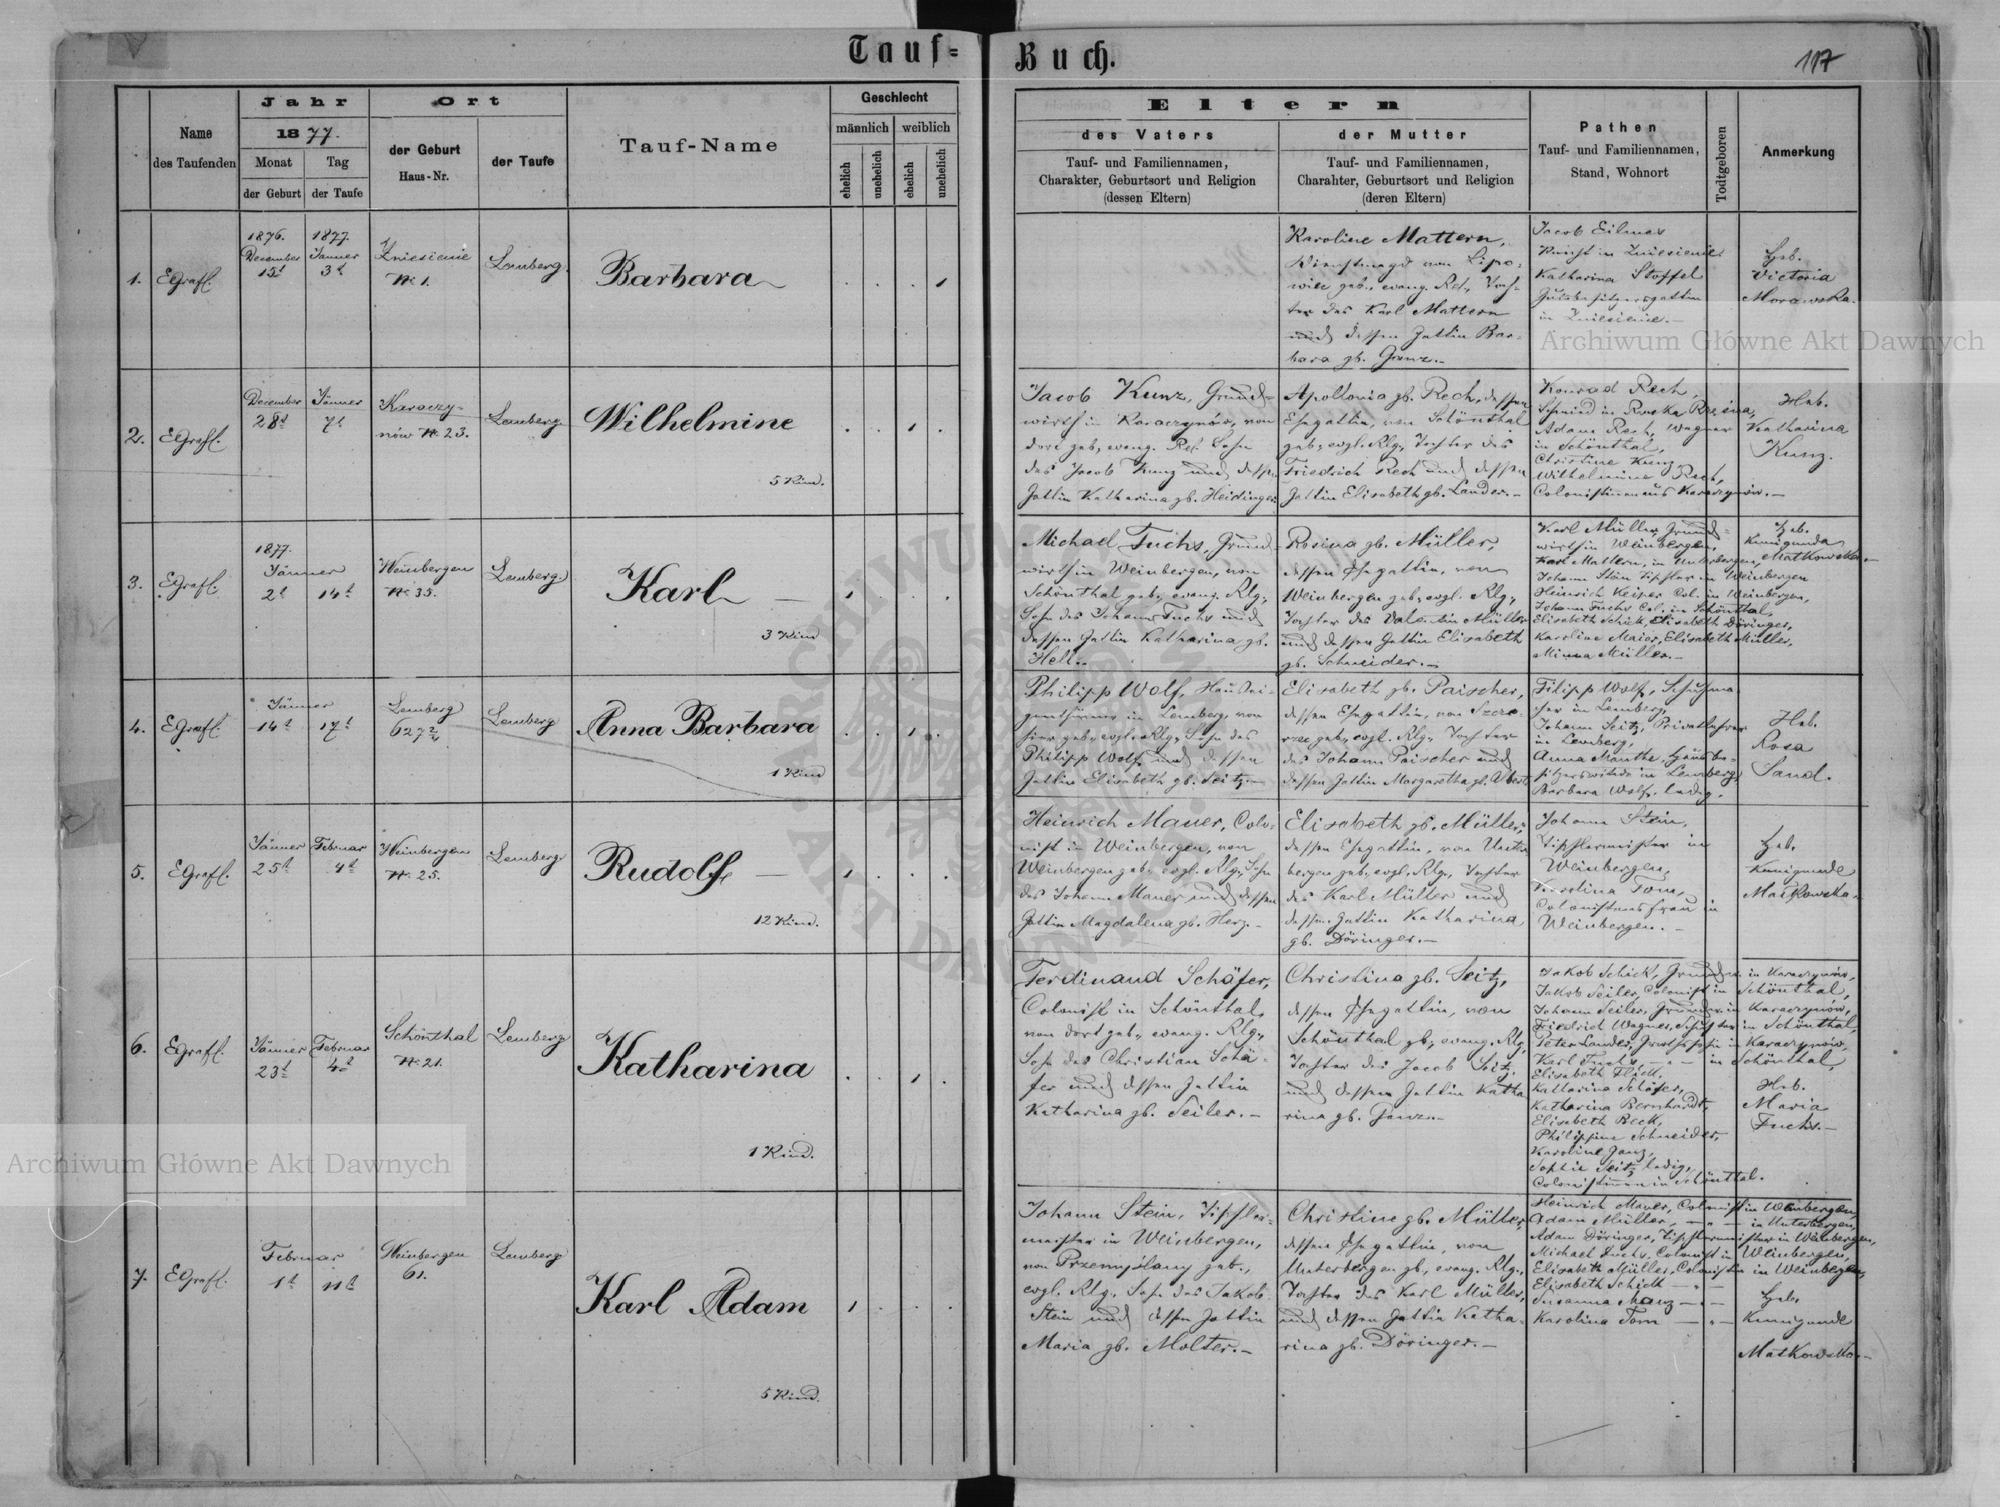 Tauf-Buch.
117
Name des Taufenden
Jahr
1877.
Monat
Tag
der Geburt
der Taufe
Ort
der Geburt
Haus-Nr.
der Taufe
Tauf-Name
Geschlecht
männlich
weiblich
ehelich
unehelich
ehelich
unehelich
Eltern
des Vaters
Tauf- und Familiennamen,
Charakter, Geburtsort und Religion
(dessen Eltern)
der Mutter
Tauf- und Familiennamen,
Charahter, Geburtsort und Religion
(deren Eltern)
Pathen
Tauf- und Familiennamen,
Stand, Wohnort
Todtgeboren
Anmerkung
1.
EGrafl.
1876.
December
1877.
Jänner
3t
Zniesienie
No 1.
Lemberg.
Barbara
Karoline Mattern,
Dienstmagd von Lipo-
wiec geb., evang. Rel., Toch-
ter des Karl Mattern
und dessen Gattin Bar-
bara gb. Ganz.-
Jacob Eilmes
Knecht in Zniesienie
Katharina Stoffel
Gutsbesitzersgattin
in Zniesienie.-
Heb.
Victoria
Morawska.
2.
EGrafl.
December
28t
Jänner
7t
Karaczy-
nów No 23.
Lemberg.
Wilhelmine
5 Kind.
Jacob Kunz, Grund-
wirth in Karaczynów, von
dort geb., evang. Rel. Sohn
des Jacob Kunz und dessen
Gattin Katharina gb. Heidinger.
Apollonia gb. Rech, dessen
Ehegattin, von Schönthal
geb., evgl. Rlg., Tochter des
Friedrich Rech und dessen
Gattin Elisabeth gb. Lander.-
Konrad Rech,
Schmied in Ruska
Adam Rech, Wagner
in Schönthal,
Christine Kunz
Wilhelmine Rech,
Colonistinen aus Karaczynów.-
Heb.
Katharina
Kunz.
3.
EGrafl.
1877.
Jänner
2t
14t
Weinbergen
No 35.
Lemberg.
Karl
3 Kind
Michael Fuchs, Grund-
wirth in Weinbergen, von
Schönthal geb., evang. Rlg.,
Sohn des Johann Fuchs und
dessen Gattin Katharina gb.
Hell.-
Rosina gb. Müller,
dessen Ehegattin, von
Weinbergen geb., evgl. Rlg.,
Tochter des Valentin Müller
und dessen Gattin Elisabeth
gb. Schneider.-
Karl Müller, Grund-
wirth in Weinbergen,
Karl Mattern, in Unterbergen,
Johann Stein Tischler in Weinbergen
Heinrich Keiper Col. in Weinbergen,
Johann Fuchs Col. in Schönthal,
Elisabeth Schick, Elisabeth Döringer,
Karoline Maier, Elisabeth Müller.
Minna Müller.-
Heb.
Kunigunda
Matkowska.-
4.
EGrafl.
Jänner
14t
17t
Lemberg
627 2/4
Lemberg
Anna Barbara
1 Kind
Philipp Wolf, Hausei-
genthümer in Lemberg, von
hier geb., evgl. Rlg., Sohn des
Philipp Wolf und dessen
Gattin Elisabeth gb. Seitz.-
Elisabeth gb. Paischer,
dessen Ehegattin, von Szcze-
rzec geb., evgl. Rlg., Tochter
des Johann Paischer und
dessen Gattin Margaretha gb. Obert.
Filipp Wolf, Schuhma-
cher in Lemberg,
Johann Seitz, Privatlehrer
in Lemberg,
Anna Manthe, Hausbe-
sitzerswitwe in Lemberg,
Barbara Wolf, ledig.
Heb.
Rosa
Sand.
5.
EGrafl.
Jänner
25t
Februar
4t
Weinbergen
No 25.
Lemberg
Rudolf
12 Kind.
Heinrich Mauer, Colo-
nist in Weinbergen, von
Weinbergen geb., evgl. Rlg., Sohn
des Johann Mauer und dessen
Gattin Magdalena gb. Herz.-
Elisabeth gb. Müller,
dessen Ehegattin, von Unter-
bergen geb., evgl. Rlg., Tochter
des Karl Müller und
dessen Gattin Katharina
gb. Döringer.-
Johann Stein,
Tischlermeister in
Weinbergen,
Karolina Tom,
Colonistensfrau in
Weinbergen.-
Heb.
Kunigunde
Matkowska.
6.
EGrafl.
Jänner
23t
Februar
4t
Schönthal
No 21.
Lemberg
Katharina
1 Kind.
Ferdinand Schäfer,
Colonist in Schönthal,
von dort geb., evang. Rlg.,
Sohn des Christian Schä-
fer und dessen Gattin
Katharina gb. Seiler.-
Christina gb. Seitz,
dessen Ehegattin, von
Schönthal gb., evang. Rlg.,
Tochter des Jacob Seitz
und dessen Gattin Katha-
rina gb. Ganz.-
Jakob Schick, Grundw. in Karaczynów,
Jakob Seiler, Colonist in Schönthal,
Johann Seiler, Grundw. in Karaczynów,
Friedrich Wagner, in Schönthal,
Peter Lander, in Karaczynów,
Karl Fuchs, - " - in Schönthal,
Elisabeth Flick,
Katharina Schäfer,
Katharina Bernhardt,
Elisabeth Beck,
Philippine Schneider,
Karoline Ganz,
Sophie Seitz ledig,
Colonistinnen in Schönthal.
Heb.
Maria
Fuchs.-
7.
EGrafl.
Februar
1t
11t
Weinbergen
61.
Lemberg
Karl Adam
5 Kind.
Johann Stein, Tischler-
meister in Weinbergen,
von Przemyślany geb.,
evgl. Rlg. Sohn des Jakob
Stein und dessen Gattin
Maria gb. Molter.-
Christine gb. Müller,
dessen Ehegattin, von
Unterbergen gb., evang. Rlg.,
Tochter des Karl Müller,
und dessen Gattin Katha-
rina gb. Döringer.-
Heinrich Mauer, Colonist in Weinbergen,
Adam Müller, - " - in Unterbergen,
Adam Döringer, Tischlermeister in Weinbergen,
Michael Fuchs, Colonist in Weinbergen,
Elisabeth Müller, Colonistin in Weinbergen,
Elisabeth Schick - " -
Susanna Manz - " -
Karolina Tom - " -
Heb.
Kunigunde
Matkowska.-
Archiwum Główne Akt Dawnych
Archiwum Główne Akt Dawnych
ARCHIWUM GŁÓWNE AKT DAWNYCH